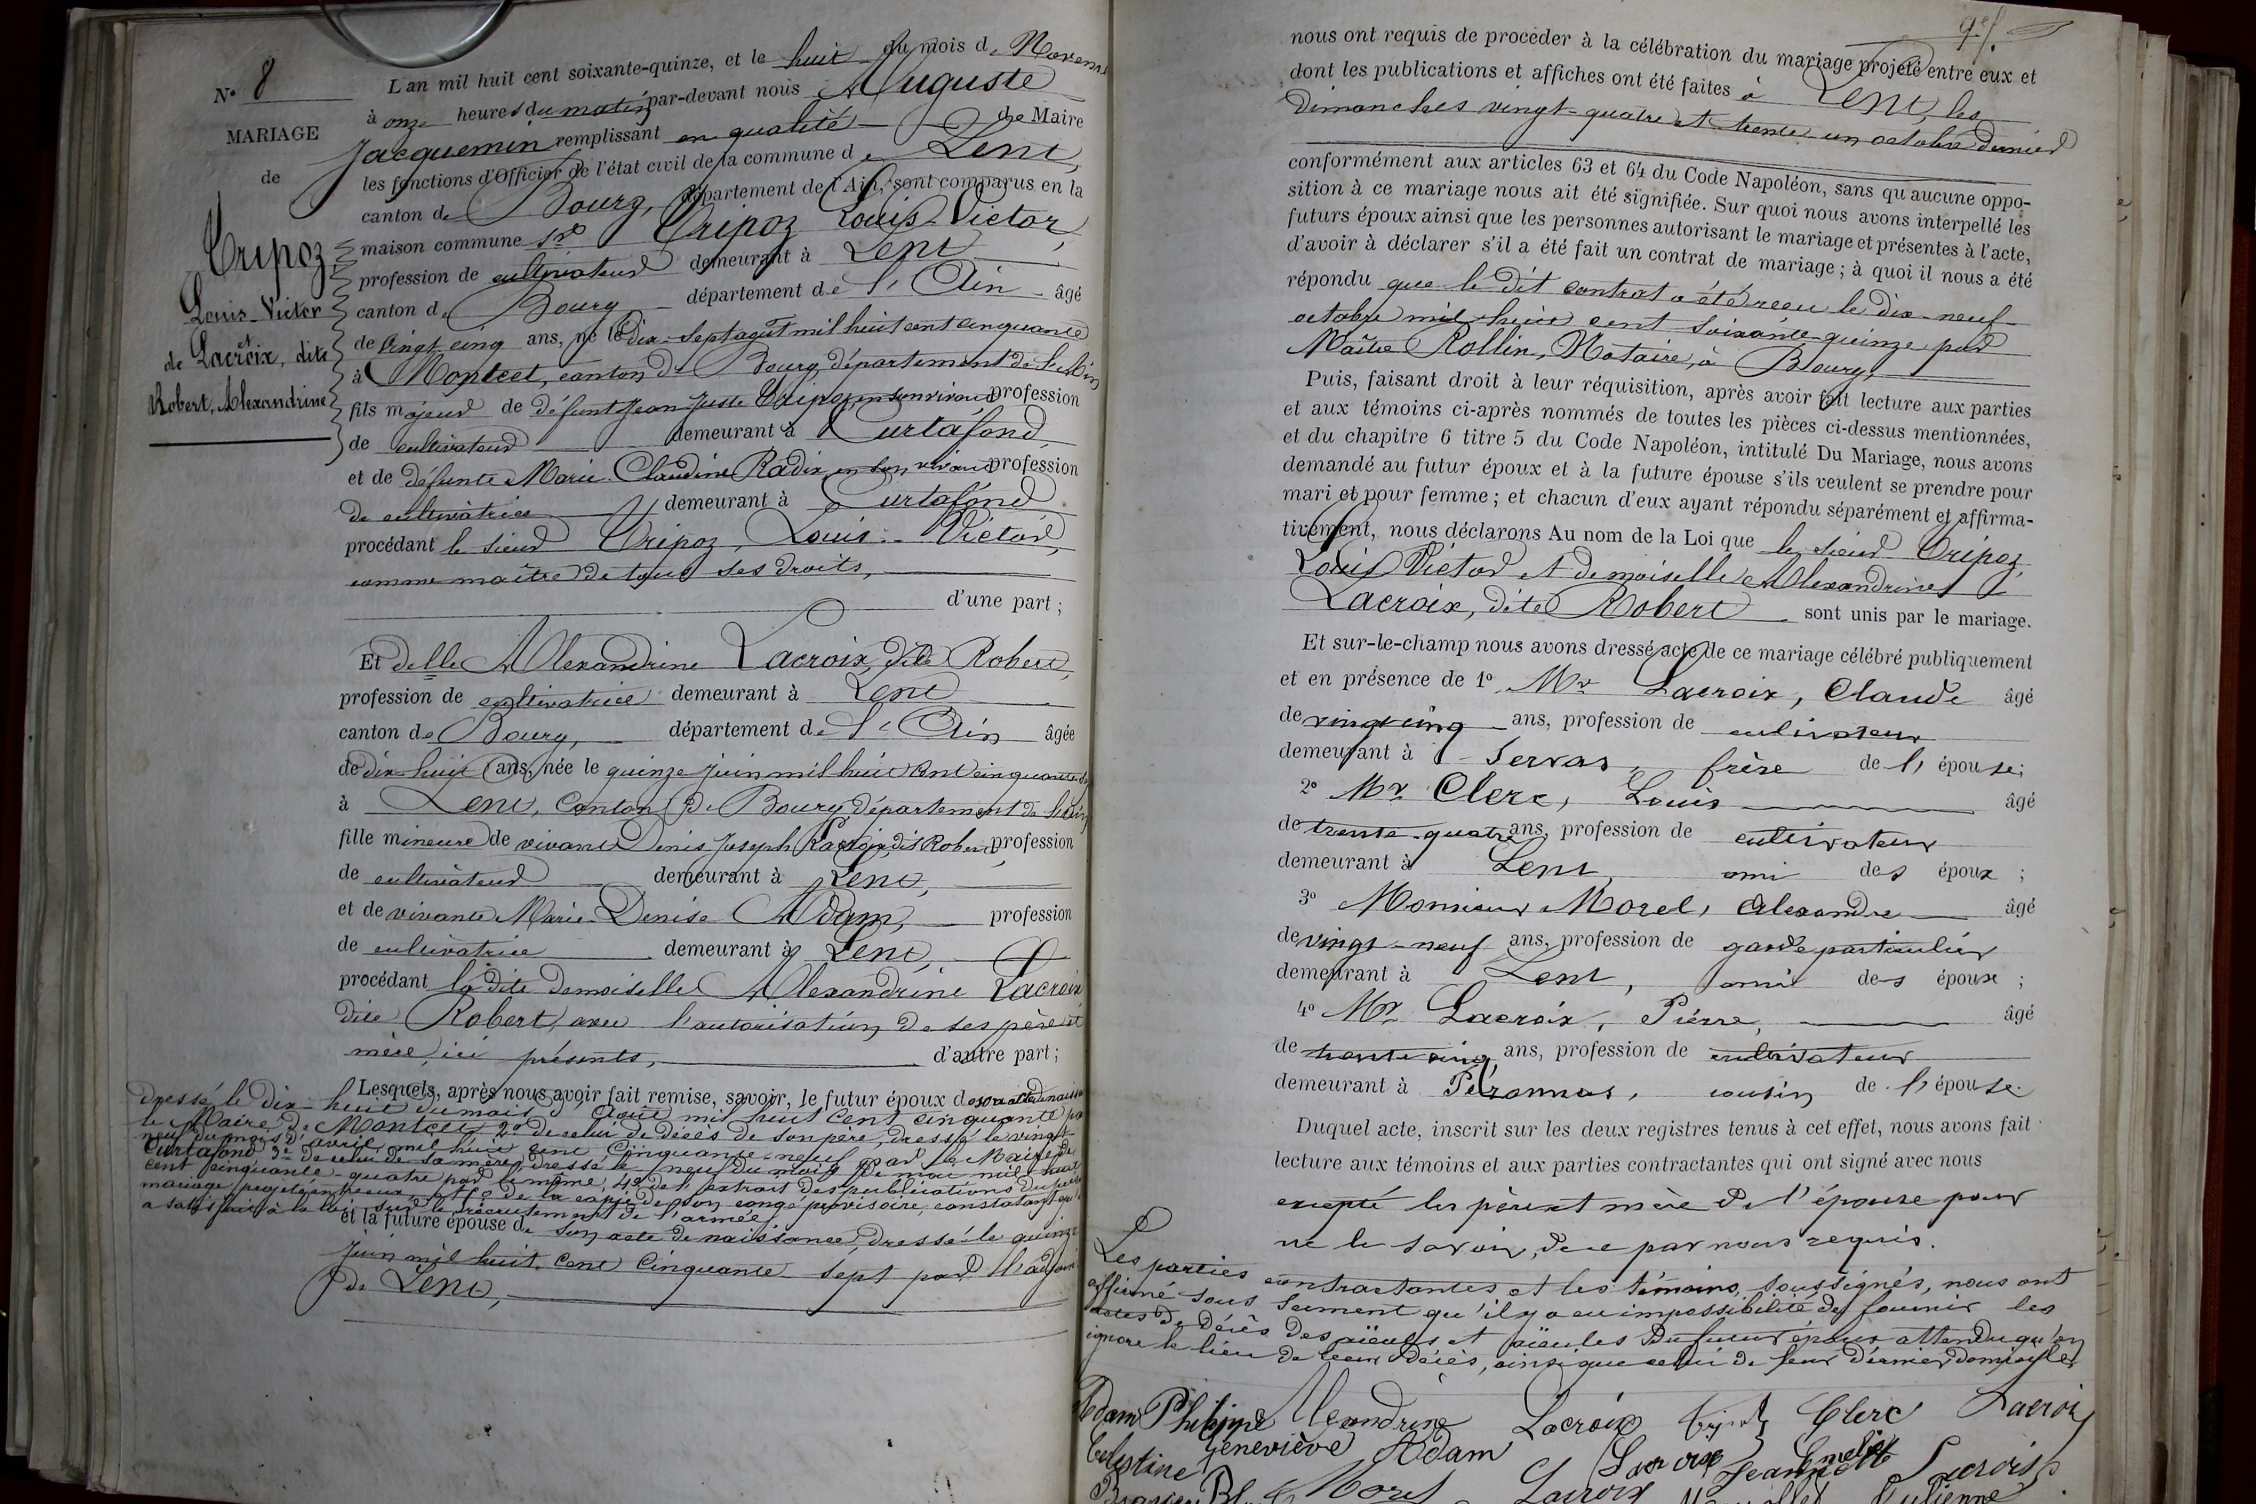 N° 8
MARIAGE
de
Tripoz
Louis-Victor
et
de Lacroix, dite
Robert, Alexandrine
L'an mil huit cent soixante-quinze, et le huit du mois de Novem
à onze heures du matin par-devant nous Auguste
Jacquemin remplissant en qualité de Maire
les fonctions d'Officier de l'état civil de la commune de Lent,
canton de Bourg, département de l'Ain, sont comparus en la
maison commune sr Tripoz Louis-Victor,
profession de cultivateur demeurant à Lent
canton de Bourg département de l'Ain âgé
de vingt cinq ans, né le dix-sept août mil huit cent cinquante
à Montcet, canton de Bourg, département de l'Ain
fils majeur de défunt Jean Juste Tripoz, en son vivant profession
de cultivateur demeurant à Curtafond,
et de défunte Marie Claudine Radix, en son vivant profession
de cultivatrice demeurant à Curtafond
procédant le sieur Tripoz, Louis-Victor,
comme maître de tous ses droits,
d'une part ;
Et delle Alexandrine Lacroix, dite Robert,
profession de cultivatrice demeurant à Lent
canton de Bourg, département de l'Ain âgée
de dix-huit ans, née le quinze juin mil huit cent cinquante sept
à Lent, canton de Bourg département de l'Ain
fille mineure de vivant Denis Joseph Lacroix dit Robert, profession
de cultivateur demeurant à Lent,
et de vivante Marie-Denise Adam, profession
de cultivatrice demeurant à Lent,
procédant la dite demoiselle Alexandrine Lacroix
dite Robert, avec l'autorisation de ses père et
mère, ici présents, d'autre part ;
Lesquels, après nous avoir fait remise, savoir, le futur époux de son acte de naissance
dressé le dix-huit du mois d'août mil huit cent cinquante par
le Maire de Montcet 2° de celui de décès de son père, dressé le vingt-
neuf du mois d'avril mil huit cent cinquante-neuf par le Maire de
Curtafond 3° de celui de sa mère, dressé le neuf du mois de mai mil huit
cent cinquante-quatre par le même, 4° de l'extrait des publications du présent
mariage projeté entre eux, et 5° de la copie de son congé provisoire, constatant qu'il
a satisfait à la loi sur le recrutement de l'armée,
et la future épouse de son acte de naissance, dressé le quinze
juin mil huit cent cinquante-sept par l'adjoint
de Lent,
nous ont requis de procéder à la célébration du mariage projeté entre eux et
dont les publications et affiches ont été faites à Lent, les
dimanches vingt-quatre et trente-un octobre dernier
conformément aux articles 63 et 64 du Code Napoléon, sans qu'aucune oppo-
sition à ce mariage nous ait été signifiée. Sur quoi nous avons interpellé les
futurs époux ainsi que les personnes autorisant le mariage et présentes à l'acte,
d'avoir à déclarer s'il a été fait un contrat de mariage ; à quoi il nous a été
répondu que le dit contrat a été reçu le dix-neuf
octobre mil huit cent soixante-quinze par
Maître Rollin, Notaire, à Bourg,
Puis, faisant droit à leur réquisition, après avoir fait lecture aux parties
et aux témoins ci-après nommés de toutes les pièces ci-dessus mentionnées,
et du chapitre 6 titre 5 du Code Napoléon, intitulé Du Mariage, nous avons
demandé au futur époux et à la future épouse s'ils veulent se prendre pour
mari et pour femme ; et chacun d'eux ayant répondu séparément et affirma-
tivement, nous déclarons Au nom de la Loi que le sieur Tripoz,
Louis Victor et demoiselle Alexandrine
Lacroix, dite Robert sont unis par le mariage.
Et sur-le-champ nous avons dressé acte de ce mariage célébré publiquement
et en présence de 1° Mr Lacroix, Claude âgé
de vingt cinq ans, profession de cultivateur
demeurant à Servas, frère de l'épouse ;
2° Mr Clerc, Louis âgé
de trente-quatre ans, profession de cultivateur
demeurant à Lent, ami des époux ;
3° Monsieur Morel, Alexandre âgé
de vingt-neuf ans, profession de garde particulier
demeurant à Lent, ami des époux ;
4° Mr Lacroix, Pierre, âgé
de trente cinq ans, profession de cultivateur
demeurant à Péronnas, cousin de l'épouse.
Duquel acte, inscrit sur les deux registres tenus à cet effet, nous avons fait
lecture aux témoins et aux parties contractantes qui ont signé avec nous
excepté les père et mère de l'épouse pour
ne le savoir, de ce par nous requis.
Les parties contractantes et les témoins soussignés, nous ont
affirmé sous serment qu'il y a eu impossibilité de fournir les
actes de décès des aïeuls et aïeules du futur époux attendu qu'on
ignore le lieu de leur décès, ainsi que celui de leur dernier domicile
Adam Philippe Alexandrine Lacroix Tripoz Clerc Lacroix
Célestine Geneviève Adam Lacroix Jeannette Lacroix
Morel Lacroix Julienne